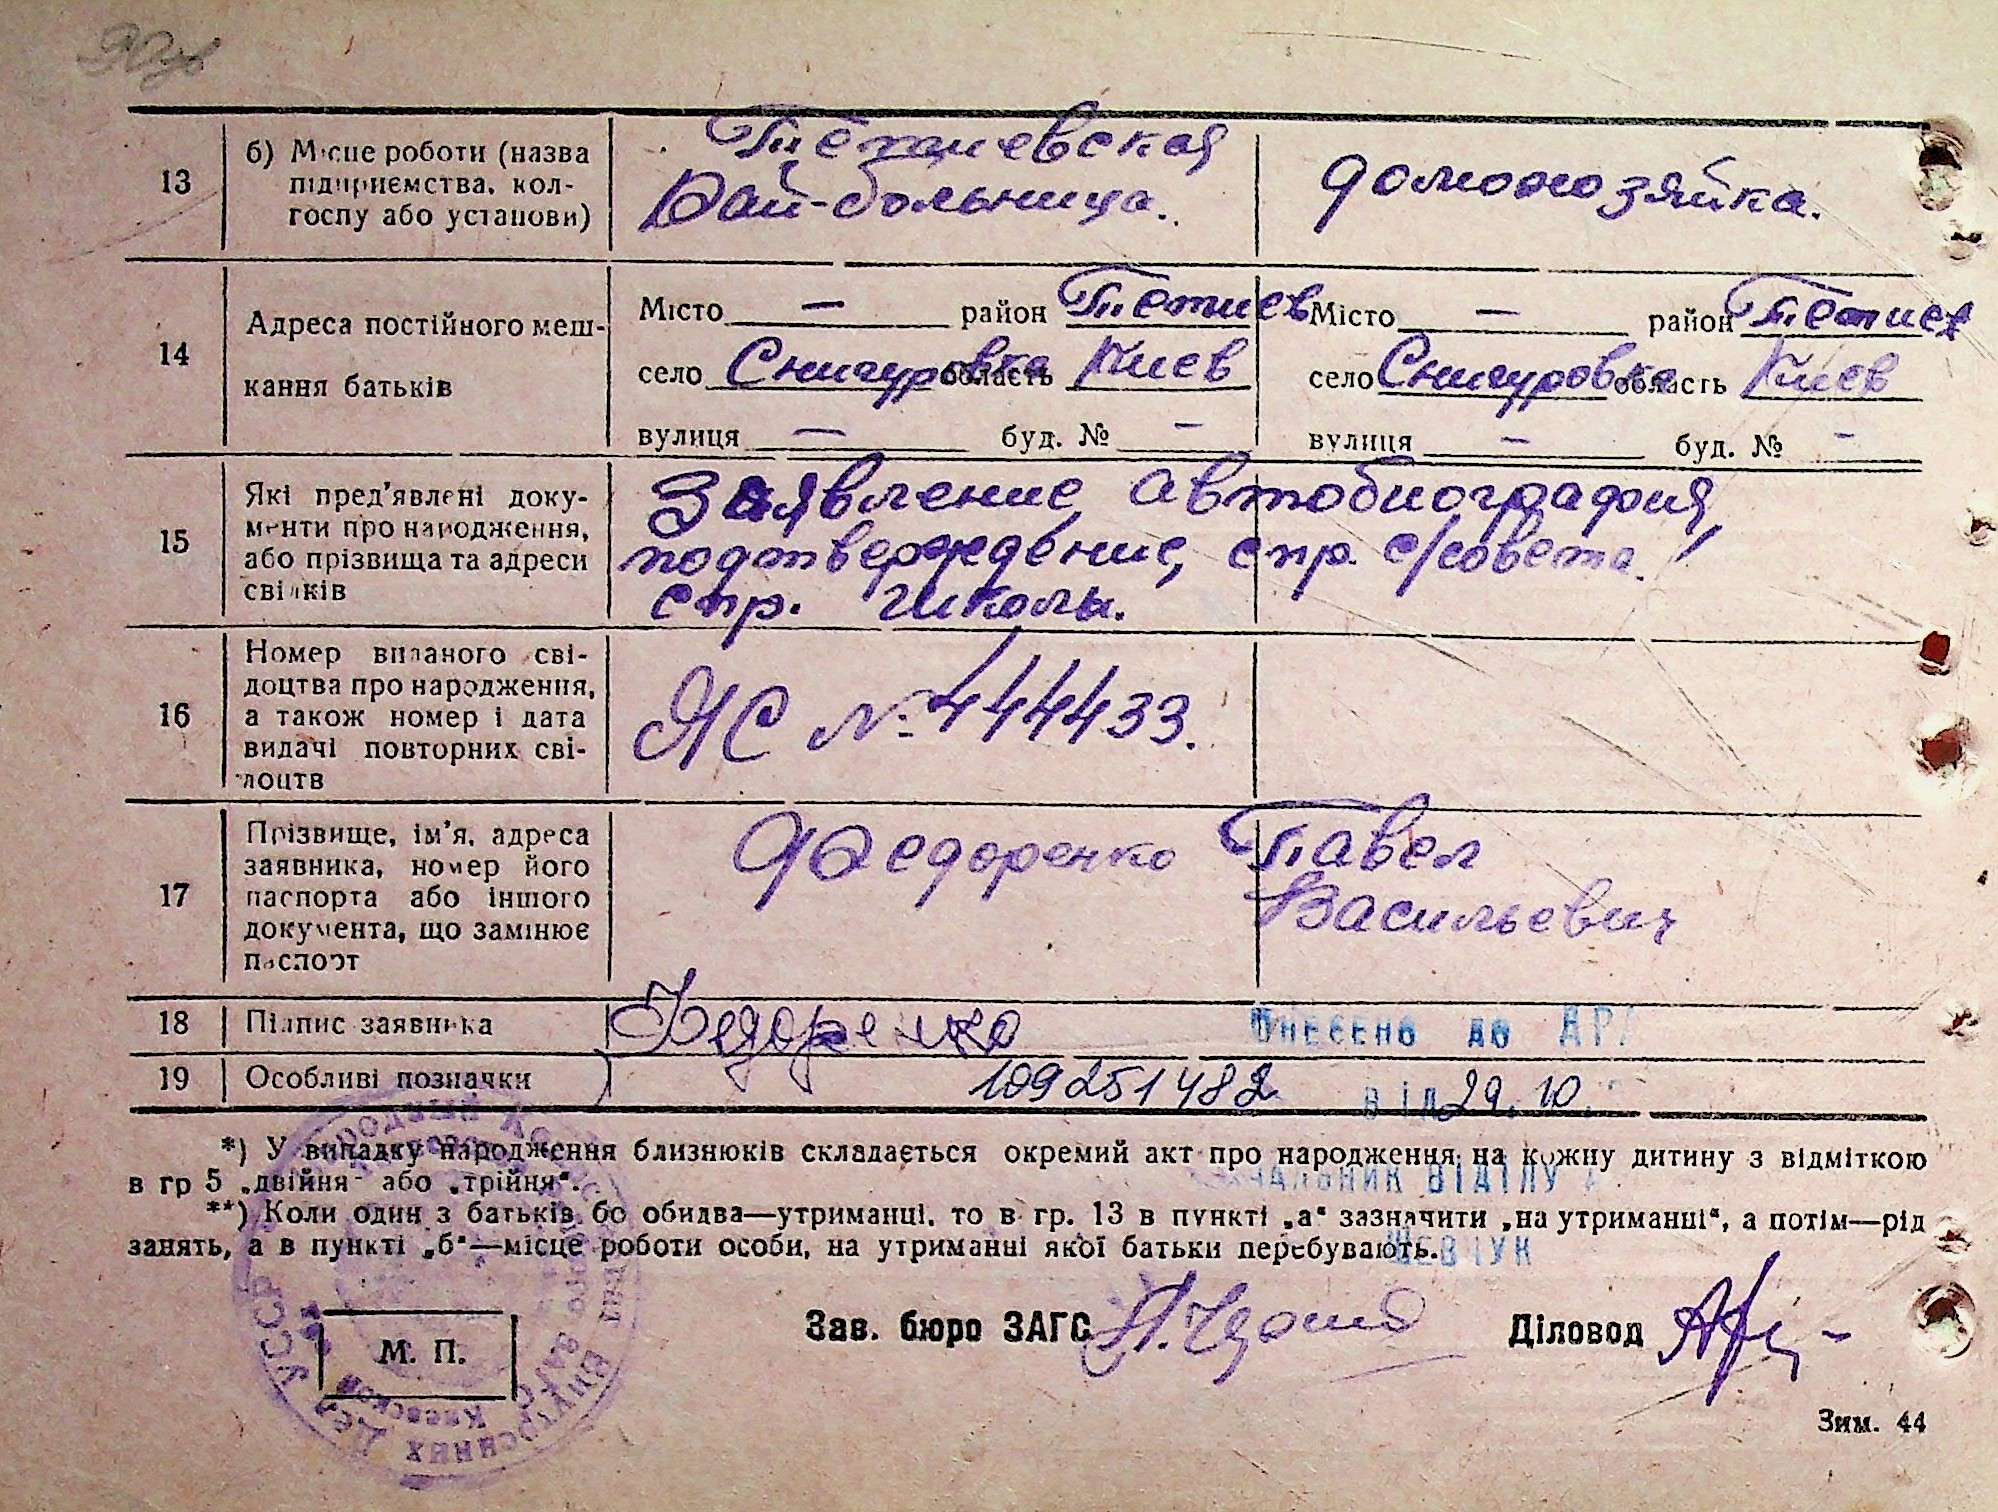 13
б) Місце роботи (назва
підприємства, кол-
госпу або установи)
Тетиевская
Рай-больница.
домохозяйка.
14
Адреса постійного меш-
кання батьків
Місто — район Тетиев
село Снигуровка область Киев
вулиця — буд. № —
Місто — район Тетиев
село Снигуровка область Киев
вулиця — буд. № —
15
Які пред'явлені доку-
менти про народження,
або прізвища та адреси
свідків
Заявление, автобиография,
подтверждение, спр. с/совета,
спр. школы.
16
Номер виданого сві-
доцтва про народження,
а також номер і дата
видачі повторних сві-
доцтв
ЯС № 444433.
17
Прізвище, ім'я, адреса
заявника, номер його
паспорта або іншого
документа, що замінює
паспорт
Федоренко Павел
Васильевич
18
Підпис заявника
Федоренко
ВНЕСЕНО ДО ДР
19
Особливі позначки
109251482
ВІД 29.10.
*) У випадку народження близнюків складається окремий акт про народження на кожну дитину з відміткою
в гр 5 „двійня" або „трійня".
НАЧАЛЬНИК ВІДІЛУ
**) Коли один з батьків бо обидва—утриманці, то в гр. 13 в пункті „а" зазначити „на утриманні", а потім—рід
занять, а в пункті „б"—місце роботи особи, на утриманні якої батьки перебувають.
ШЕВЧУК
УССР
Внутренних Дел
Киевской
ЗАГС
М. П.
Зав. бюро ЗАГС
Діловод
Зим. 44